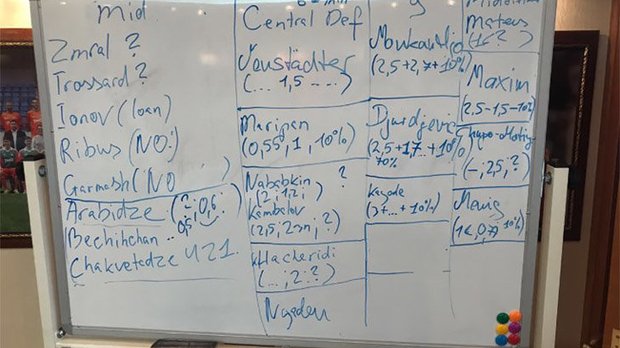 Mid
Zmral ?
Trossard ?
Ionov (loan)
Ribus (NO!)
Garmash (NO )
Arabidze (?; 0,6
0,5
Bechihchan ..
Chakvetadze U21.
Central Def
Neustädter
(... 1,5 - ...)
Maripan
(0,55; 1, 10%)
Nababkin ?
(2; 1,2;
Kambolov
(2,5; ?)
Kacheridi
(...; 2.?)
Ngadeu
(2,5+2,7+10%)
Djurdjević
(2,5+1,7...+10%)
10%
Kayode
+10%)
Mateus
(1€ ?)
Maxim
(2,5-1,5-10%)
(-; 2,5; ?
(1€, 0,7) 10%